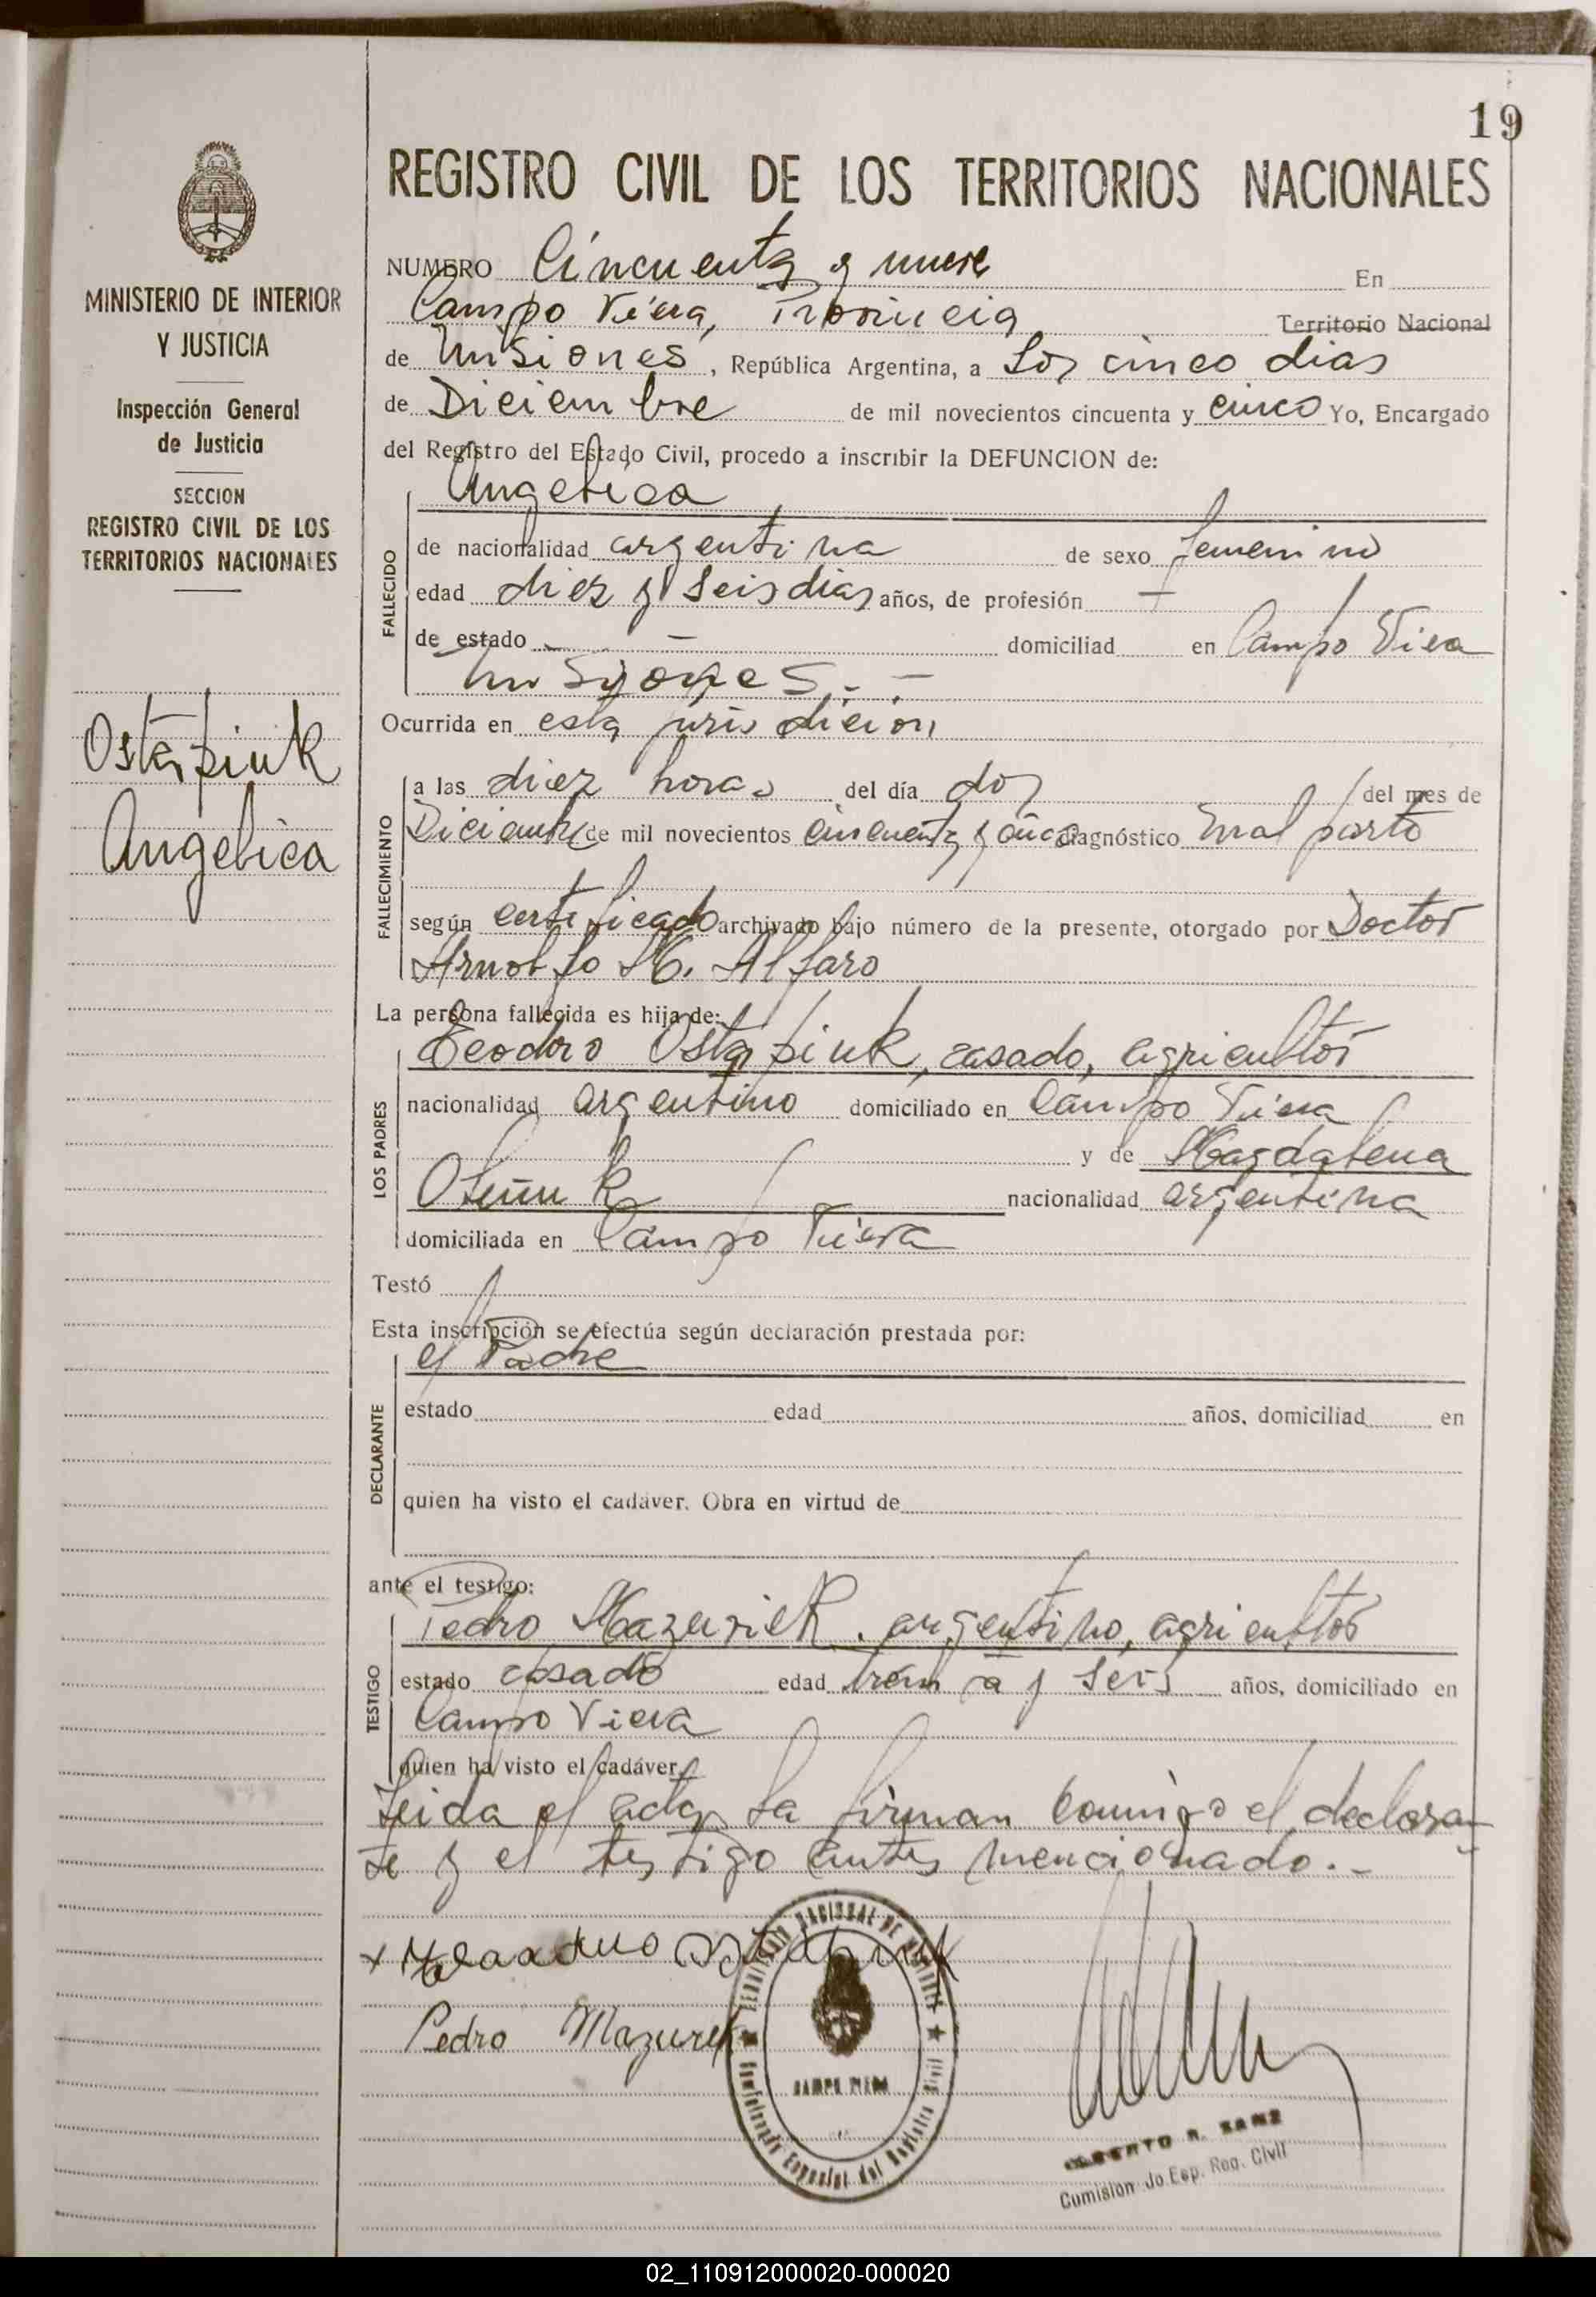 19
REGISTRO CIVIL DE LOS TERRITORIOS NACIONALES
MINISTERIO DE INTERIOR
Y JUSTICIA
Inspección General
de Justicia
SECCION
REGISTRO CIVIL DE LOS
TERRITORIOS NACIONALES
Ostapiuk
Angelica
NUMERO Cincuenta y nueve En
Campo Viera, Provincia Territorio Nacional
de Misiones, República Argentina, a Los cinco dias
de Diciembre de mil novecientos cincuenta y cinco Yo, Encargado
del Registro del Estado Civil, procedo a inscribir la DEFUNCION de:
Angelica
FALLECIDO
de nacionalidad argentina de sexo femenino
edad diez y seis dias años, de profesión —
de estado — domiciliad en Campo Viera
Misiones.-
Ocurrida en esta jurisdicion
FALLECIMIENTO
a las diez horas del día dos del mes de
Diciembre de mil novecientos cincuenta y cinco diagnóstico mal parto
según certificado archivado bajo número de la presente, otorgado por Doctor
Arnolfo M. Alfaro
La persona fallecida es hija de:
LOS PADRES
Teodoro Ostapiuk, casado, agricultor
nacionalidad argentino domiciliado en Campo Viera
y de Magdalena
nacionalidad argentina
domiciliada en Campo Viera
Testó
Esta inscripción se efectúa según declaración prestada por:
el Padre
DECLARANTE
estado edad años, domiciliad en
quien ha visto el cadáver. Obra en virtud de
ante el testigo:
TESTIGO
Pedro Mazuriek. argentino, agricultor
estado casado edad treinta y seis años, domiciliado en
Campo Viera
quien ha visto el cadáver.
Leida el acta, La firman conmigo el declaran-
te y el testigo antes mencionado.-
Pedro Mazurek
TERRITORIO NACIONAL DE MISIONES
CAMPO VIERA
del Registro Civil
ALBERTO R. SANZ
Comision do Esp. Reg. Civil
02_110912000020-000020